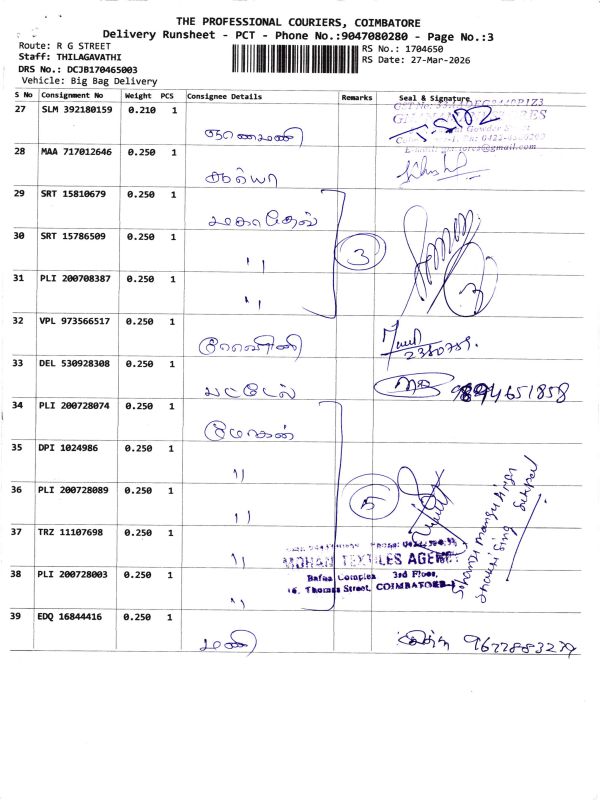 THE PROFESSIONAL COURIERS, COIMBATORE
Delivery Runsheet - PCT - Phone No.:9047080280 - Page No.:3
Route: R G STREET
RS No.: 1704650
Staff: THILAGAVATHI
RS Date: 27-Mar-2026
DRS No.: DCJB170465003
Vehicle: Big Bag Delivery
S No Consignment No Weight PCS Consignee Details Remarks Seal & Signature
27 SLM 392180159 0.210 1
28 MAA 717012646 0.250 1
29 SRT 15810679 0.250 1 மகாதேவ்
30 SRT 15786509 0.250 1 " 3
31 PLI 200708387 0.250 1 " 3
32 VPL 973566517 0.250 1
2380789.
33 DEL 530928308 0.250 1 பட்டேல் 9894651858
34 PLI 200728074 0.250 1 மோகன்
35 DPI 1024986 0.250 1 "
36 PLI 200728089 0.250 1 " 5
37 TRZ 11107698 0.250 1 "
MOHAN TEXTILES AGENCY
38 PLI 200728003 0.250 1 "
Bafna Complex 3rd Floor,
16, Thomas Street, COIMBATORE-1
39 EDQ 16844416 0.250 1 மணி 9677883279